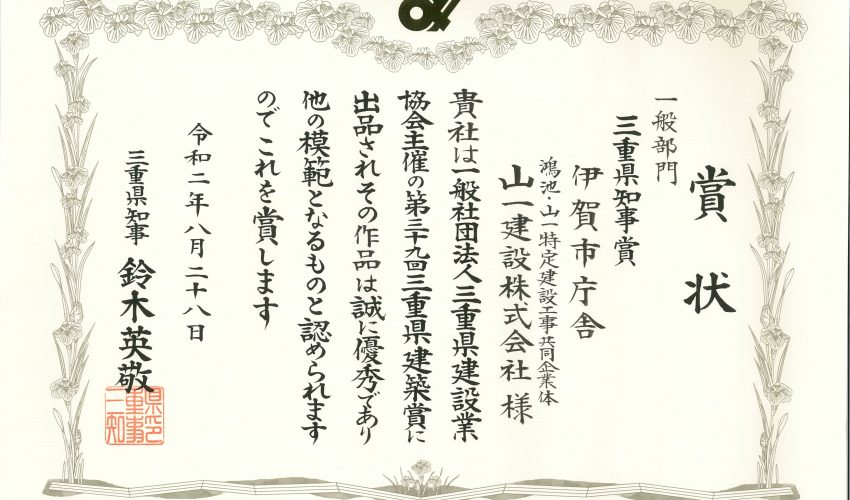 賞状
一般部門
三重県知事賞
伊賀市庁舎
鴻池・山一特定建設工事共同企業体
山一建設株式会社 様
貴社は一般社団法人三重県建設業
協会主催の第三十九回三重県建築賞に
出品されその作品は誠に優秀であり
他の模範となるものと認められます
のでこれを賞します
令和二年八月二十八日
三重県知事 鈴木英敬